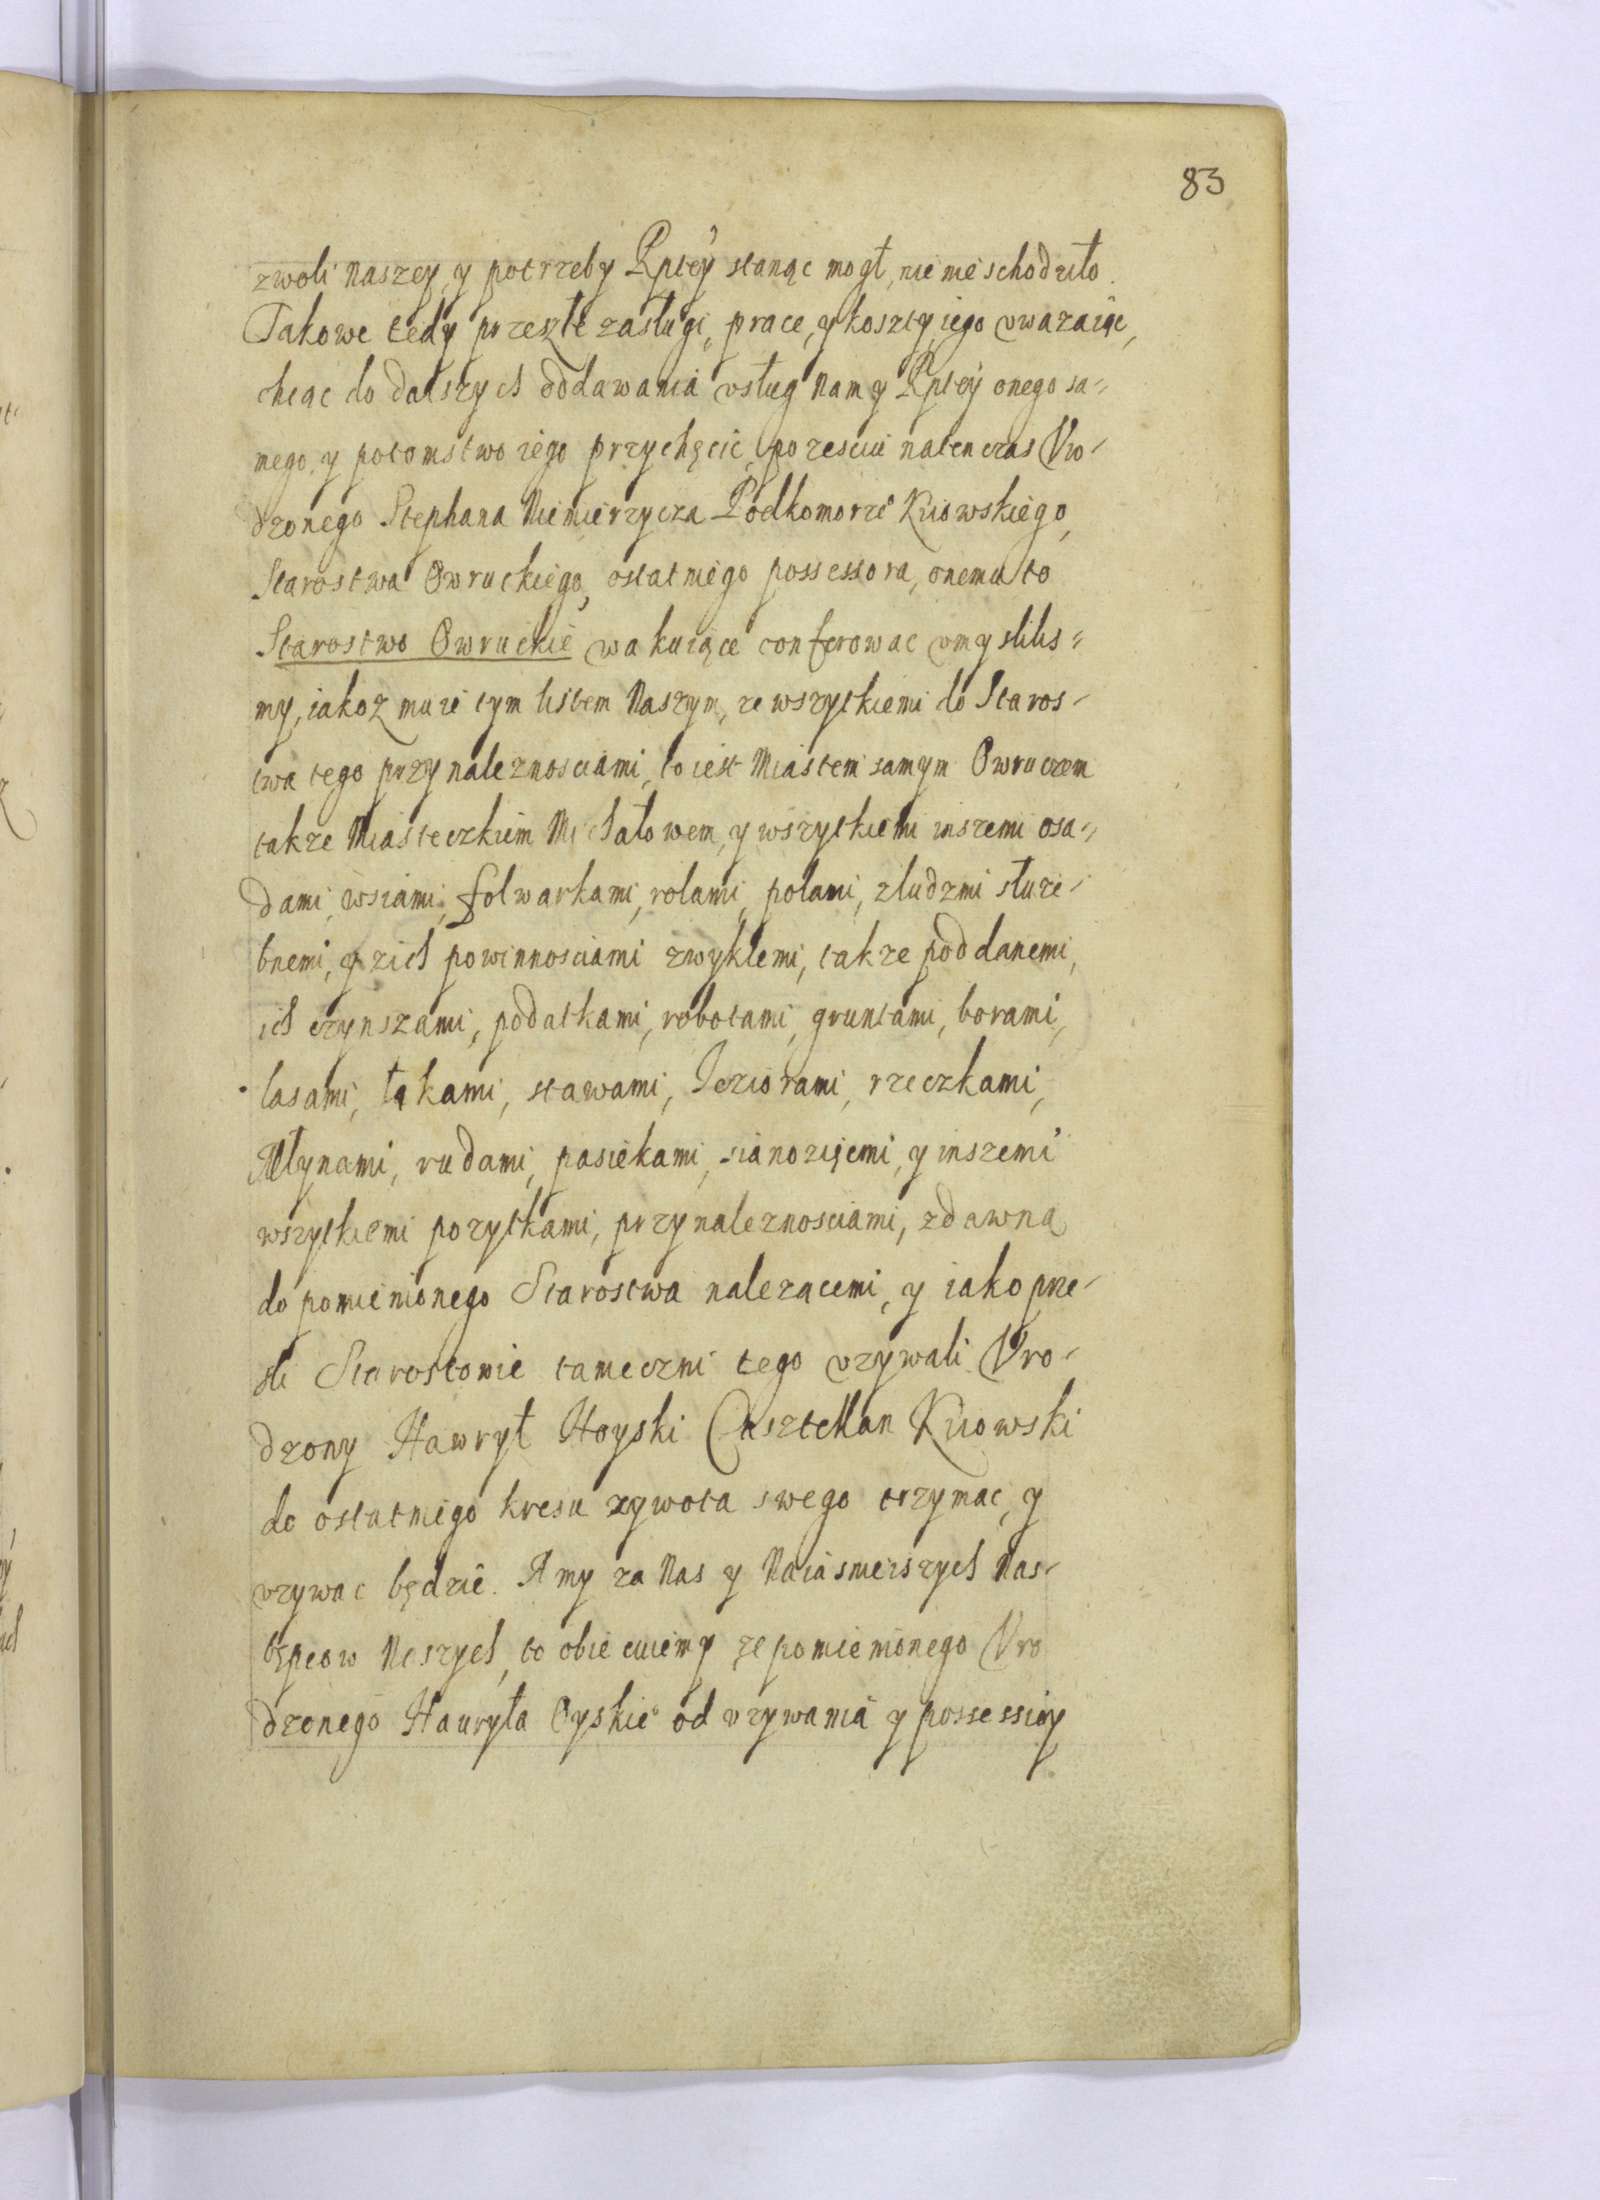 83
zwoli Naszey, y potrzeby Rptey stanąc mogł, nic nie schodziło.
Takowe tedy przeszłe zasługi, prace, y koszty iego uwazaiąc,
chcąc do dalszych oddawania usług Nam y Rptey onego sa-
mego, y potomstwo iego przychęcić, po ześciu natenczas Vro-
dzonego Stephana Niemierzycza Podkomorze Kiiowskiego,
Starostwa Owruckiego, ostatniego possessora, onemu to
Starostwo Owruckie wakuiące conferowac umyslilis-
my, iakoz mu ie tym listem Naszym, ze wszytkiemi do Staros-
twa tego przynaleznosciami, to iest Miastem samym Owruczem
takze Miasteczkiem Michałowem, y wszytkiemi inszemi osa-
dami, wsiami, folwarkami, rolami, polami, z ludzmi słuze-
bnemi, y z ich powinnosciami zwykłemi, takze poddanemi,
ich czynszami, podatkami, robotami, gruntami, borami,
lasami, łąkami, stawami, Jeziorami, rzeczkami,
Młynami, rudami, pasiekami, sianozięcmi, y inszemi
wszytkiemi pozytkami, przynaleznosciami, zdawna
do pomienionego Starostwa nalezącemi, y iako prze-
szli Starostowie tameczni tego uzywali Vro-
dzony Hawrył Hoyski Casztellan Kiiowski
do ostatniego kresu zywota swego trzymac, y
uzywac będzie. A my za Nas y Naiasnieiszych Nas-
tępcow Naszych, to obiecuiemy ze pomienionego Vro
dzonego Hauryła Oyskie° od uzywania y possessiey